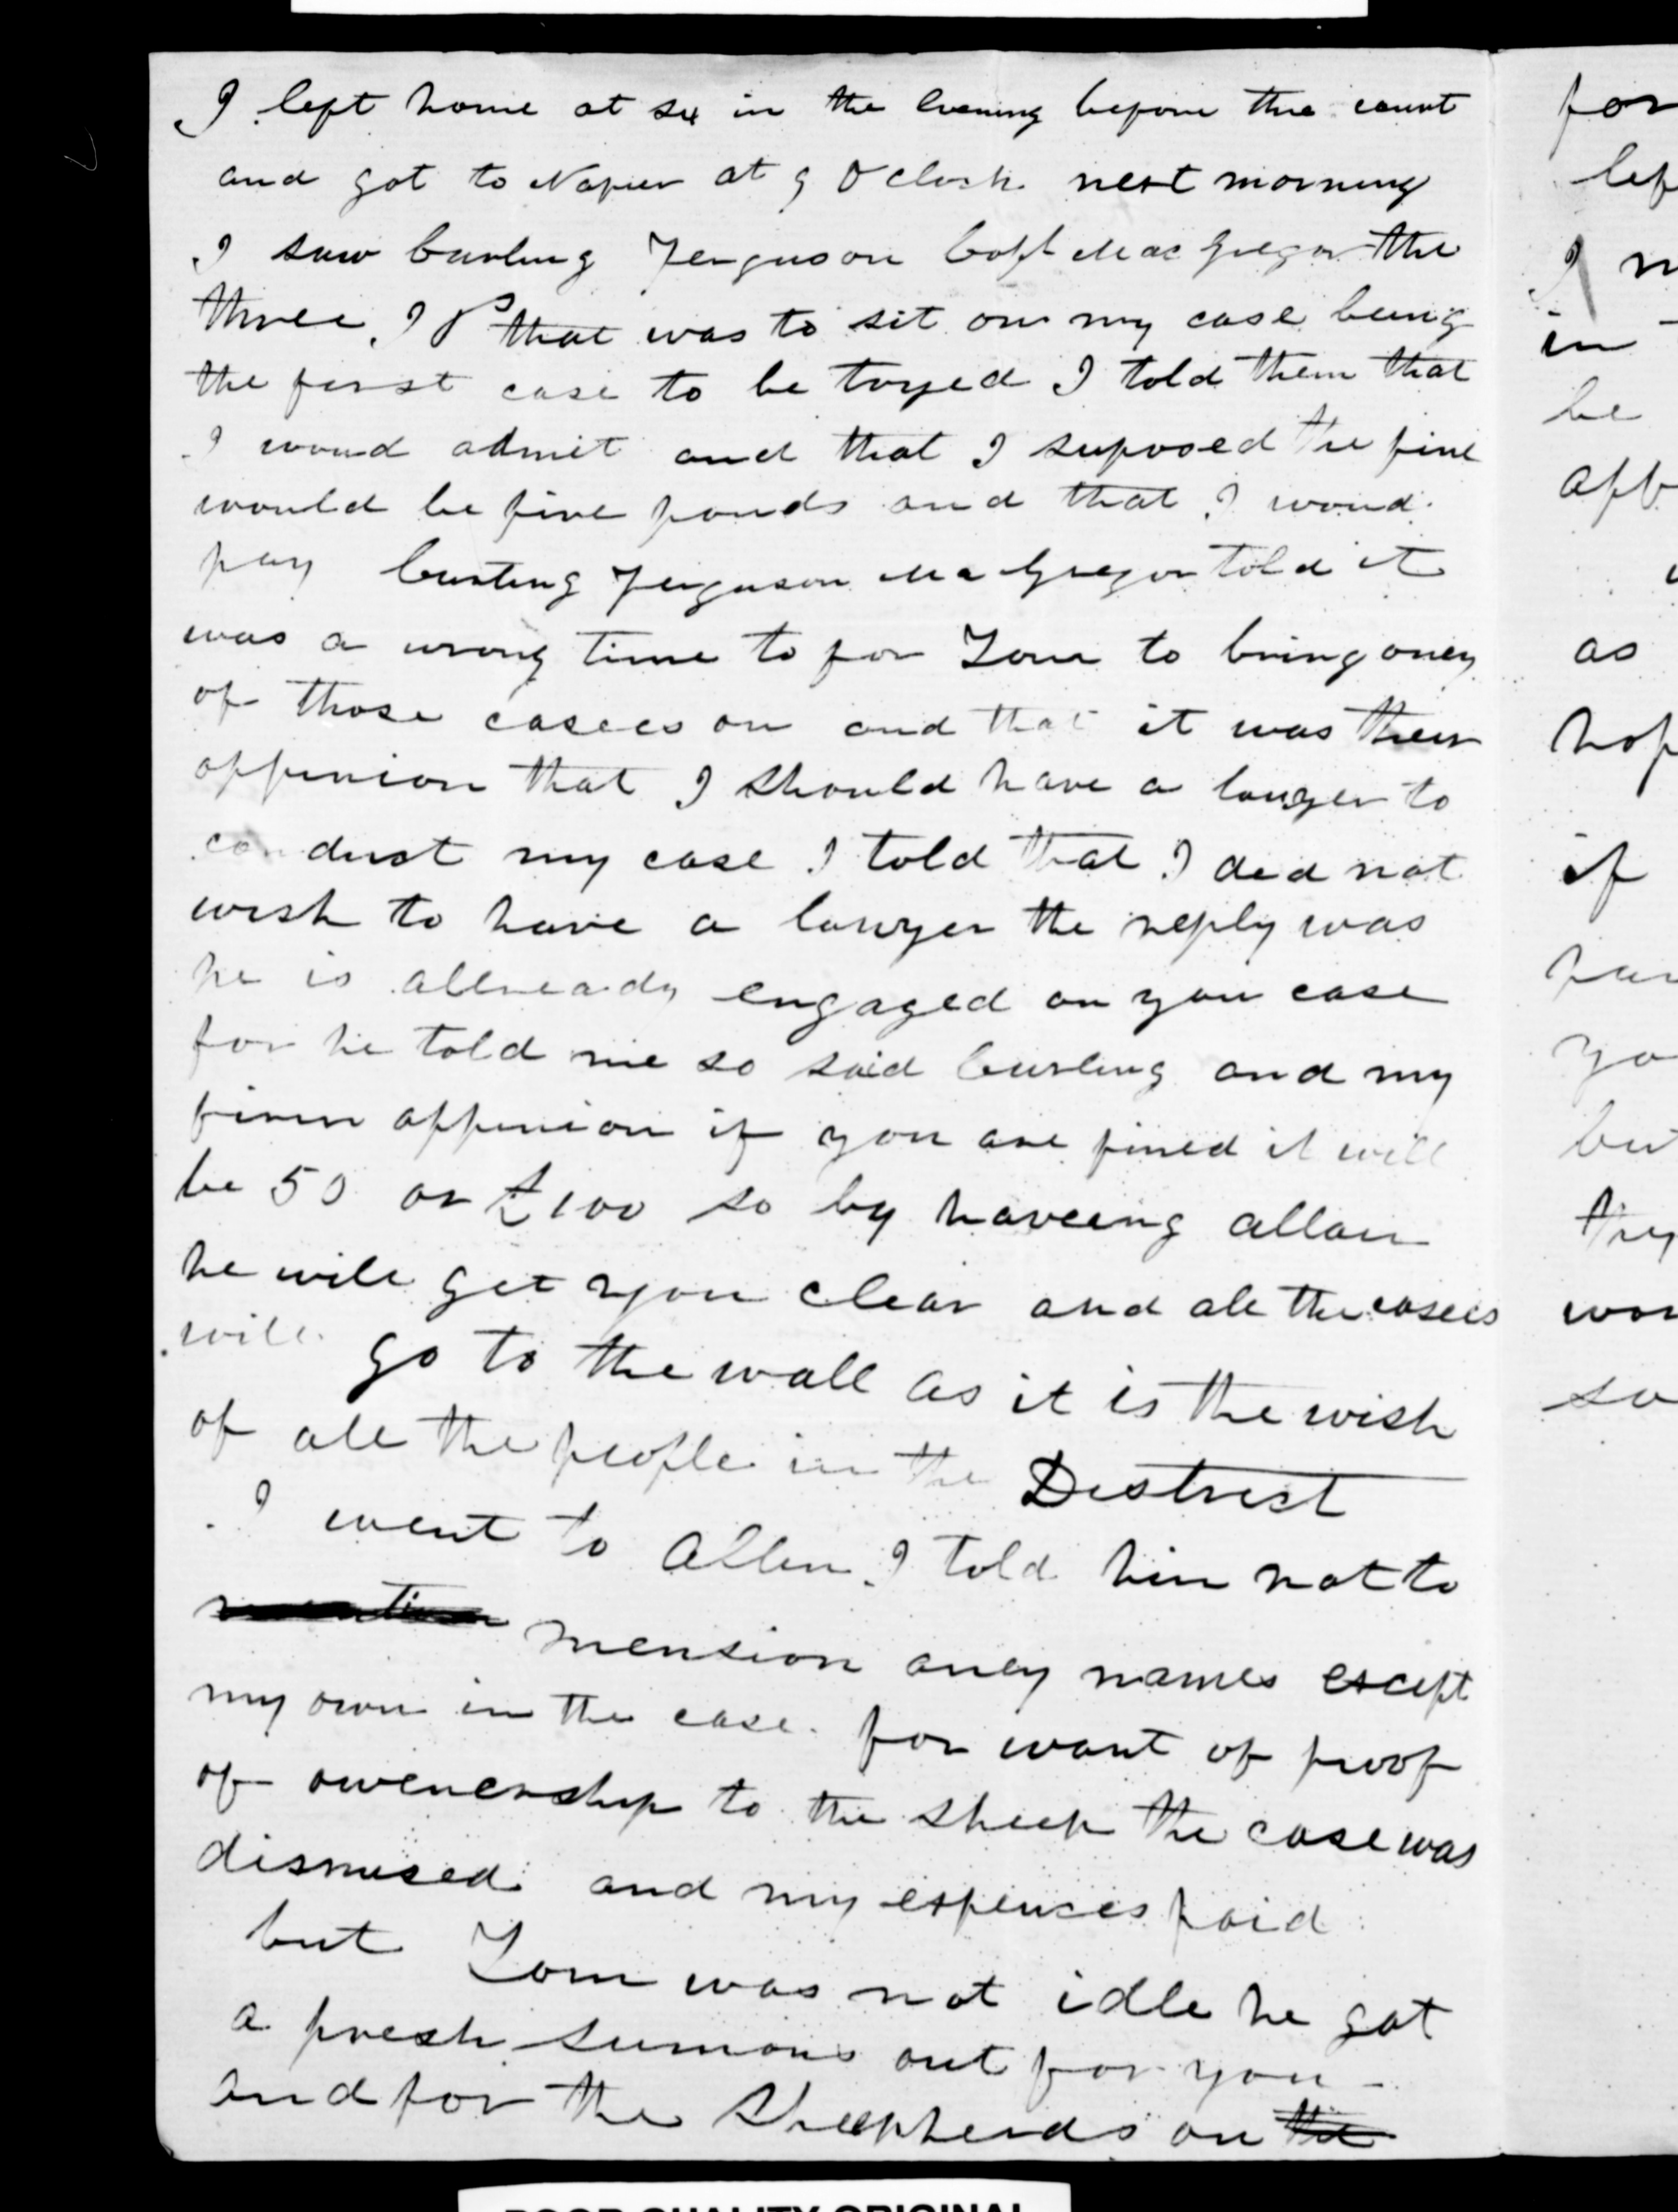 I left home at six in the evening before the court
and got to Napier at 9 O clock next morning
I saw Curling Ferguson Capt MacGregor the
three J Ps that was to sit on my case being
the first case to be tryed I told them that
I woud admit and that I suposed the fine
would be five pouds and that I woud
pay Curling Ferguson MacGregor told it
was a wrong time to for Tom to bring oney
of those casees on and that it was their
oppinion that I should have a lawyer to
conduct my case I told that I did not
wish to have a lawyer the reply was
he is allready engaged on you case
for he told me so said Curling and my
firm oppinion if you are fined it will
be 50 or £100 so by haveing allan
he will get you clear and all the casees
will go to the wall as it is the wish
of all the people in the District
I went to Allen I told him not to
mention mension aney names except
my own in the case. for want of proof
of owenership to the sheep the case was
dismised and my expences paid
but Tom was not idle he got
a fresh sumons out for you -
and for the Sheepherds on the
for
lef
I
in
be
as
hop
if
yo
but
they
wor
so
POOR QUALITY ORIGINAL